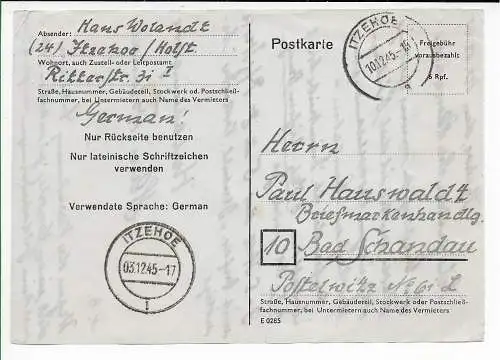 Absender: Hans Wolandt
(24) Itzehoe/Holst
Wohnort, auch Zustell- oder Leitpostamt
Ritterstr. 31 I
Straße, Hausnummer, Gebäudeteil, Stockwerk od. Postschließ-
fachnummer, bei Untermietern auch Name des Vermieters
German!
Nur Rückseite benutzen
Nur lateinische Schriftzeichen
verwenden
Verwendate Sprache: German
ITZEHOE
03.12.45-17
1
Postkarte
ITZEHOE
10.12.45-15
a
Freigebühr
vorausbezahlt
6 Rpf.
Herrn
Paul Hauswaldt
Briefmarkenhandlg.
10 Bad Schandau
Postelwitz No 61 L
Straße, Hausnummer, Gebäudeteil, Stockwerk oder Postschließ-
fachnummer, bei Untermietern auch Name des Vermieters
E 0285